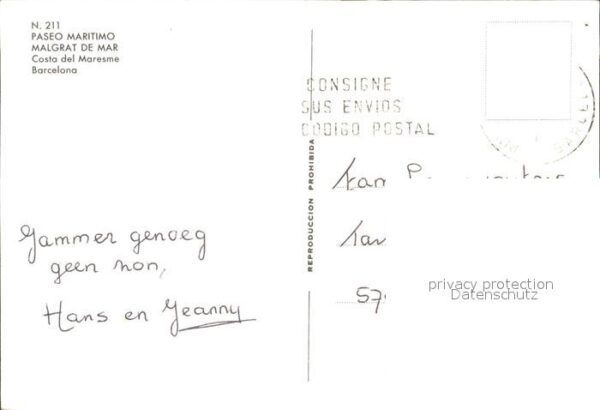 N. 211
PASEO MARITIMO
MALGRAT DE MAR
Costa del Maresme
Barcelona
CONSIGNE
SUS ENVIOS
CODIGO POSTAL
REPRODUCCION PROHIBIDA
Jammer genoeg
geen zon,
Hans en Jeanny
Fam
57
privacy protection
Datenschutz